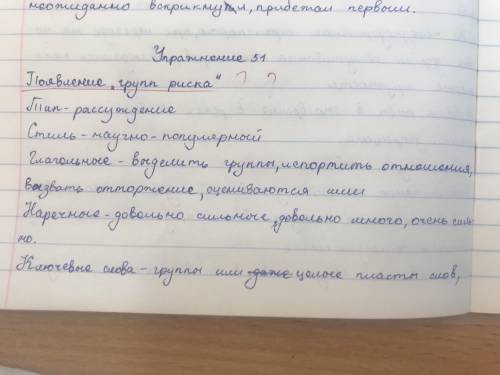 неожиданно вскрикнул, прибежал первым.
Упражнение 51
Появление „групп риска" ? ?
Тип - рассуждение
Стиль - научно-популярный
Глагольные - выделить группы, испортить отношения,
вызвать отторжение, оцениваются ими
Наречные - довольно сильные, довольно много, очень силь
но.
Ключевые слова - группы или даже целые пласты слов,